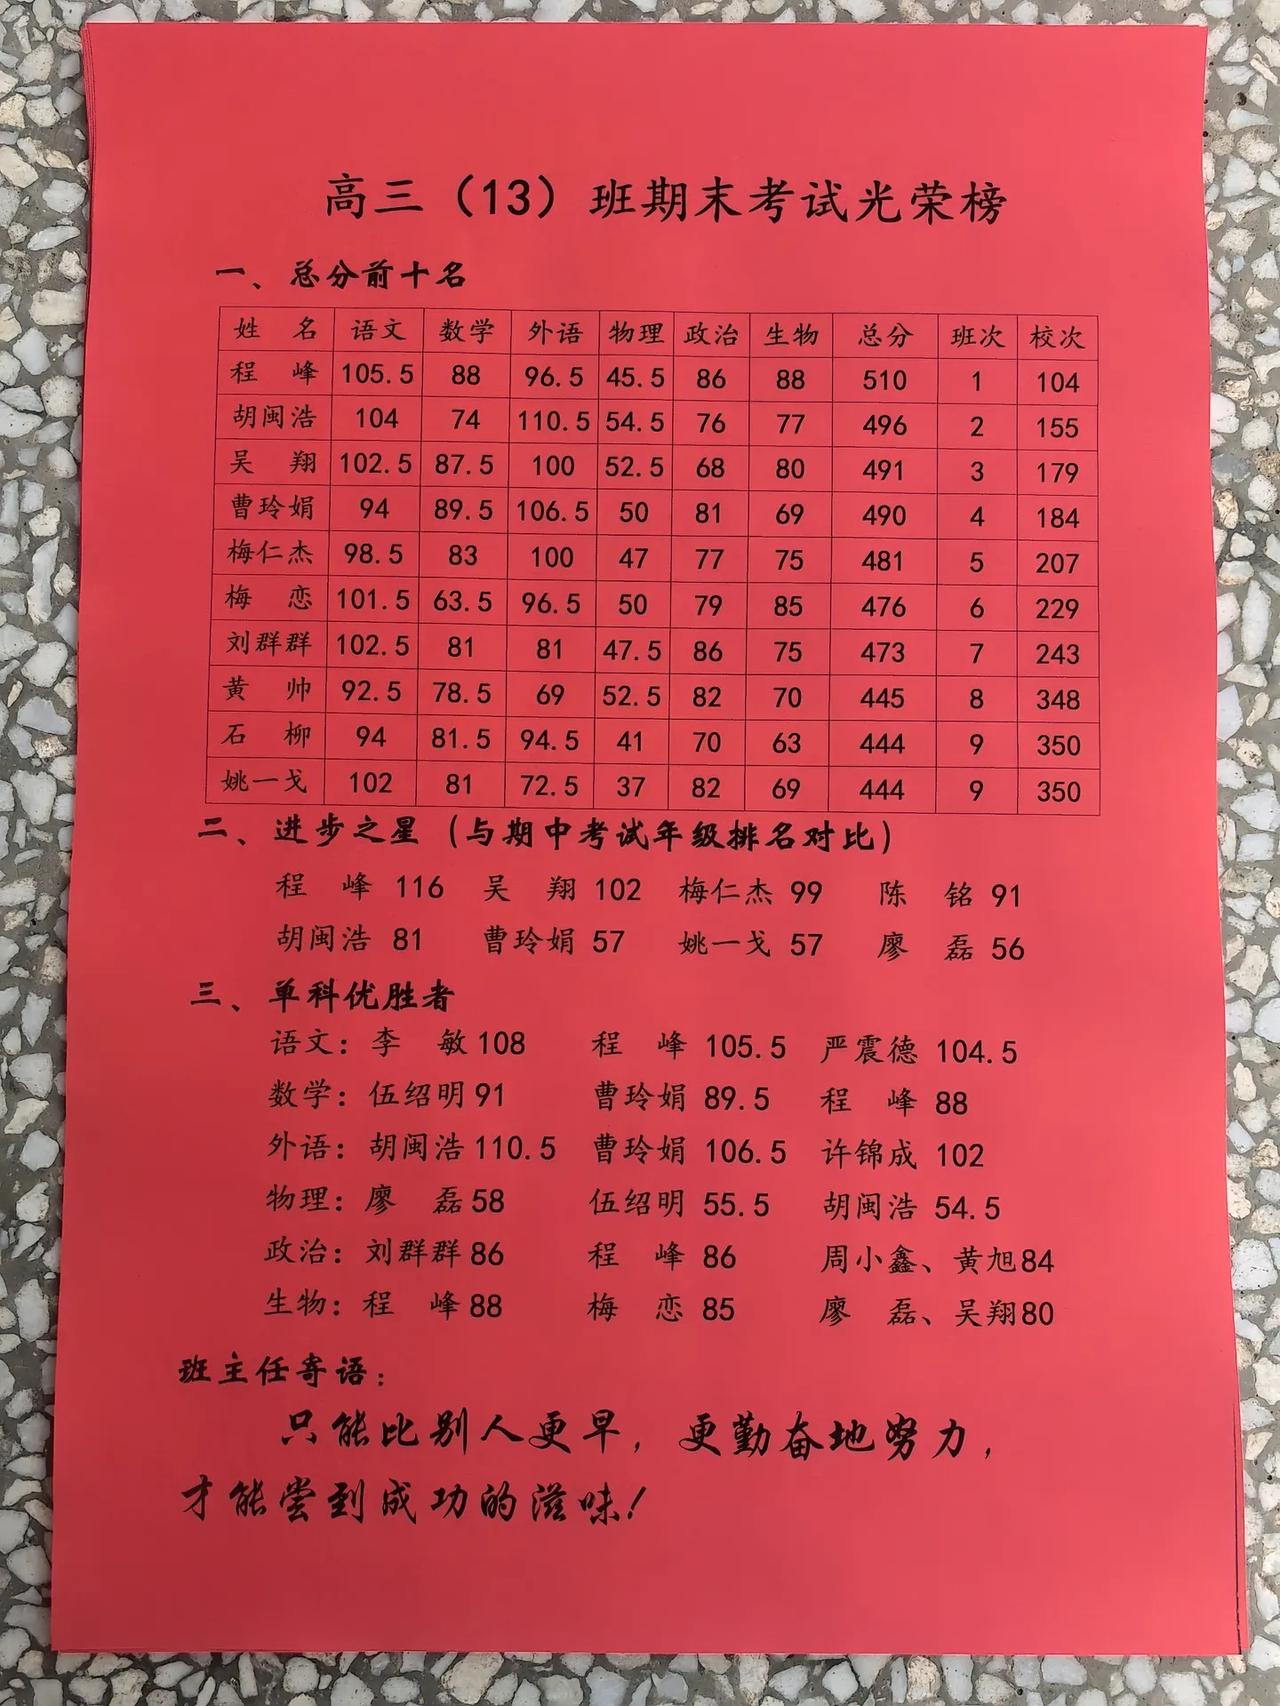 高三（13）班期末考试光荣榜
一、总分前十名
姓　名 语文 数学 外语 物理 政治 生物 总分 班次 校次
程　峰 105.5 88 96.5 45.5 86 88 510 1 104
胡闽浩 104 74 110.5 54.5 76 77 496 2 155
吴　翔 102.5 87.5 100 52.5 68 80 491 3 179
曹玲娟 94 89.5 106.5 50 81 69 490 4 184
梅仁杰 98.5 83 100 47 77 75 481 5 207
梅　恋 101.5 63.5 96.5 50 79 85 476 6 229
刘群群 102.5 81 81 47.5 86 75 473 7 243
黄　帅 92.5 78.5 69 52.5 82 70 445 8 348
石　柳 94 81.5 94.5 41 70 63 444 9 350
姚一戈 102 81 72.5 37 82 69 444 9 350
二、进步之星（与期中考试年级排名对比）
程　峰 116 吴　翔 102 梅仁杰 99 陈　铭 91
胡闽浩 81 曹玲娟 57 姚一戈 57 廖　磊 56
三、单科优胜者
语文：李　敏108 程　峰 105.5 严震德 104.5
数学：伍绍明91 曹玲娟 89.5 程　峰 88
外语：胡闽浩110.5 曹玲娟 106.5 许锦成 102
物理：廖　磊58 伍绍明 55.5 胡闽浩 54.5
政治：刘群群86 程　峰 86 周小鑫、黄旭84
生物：程　峰88 梅　恋 85 廖　磊、吴翔80
班主任寄语：
只能比别人更早，更勤奋地努力，
才能尝到成功的滋味！